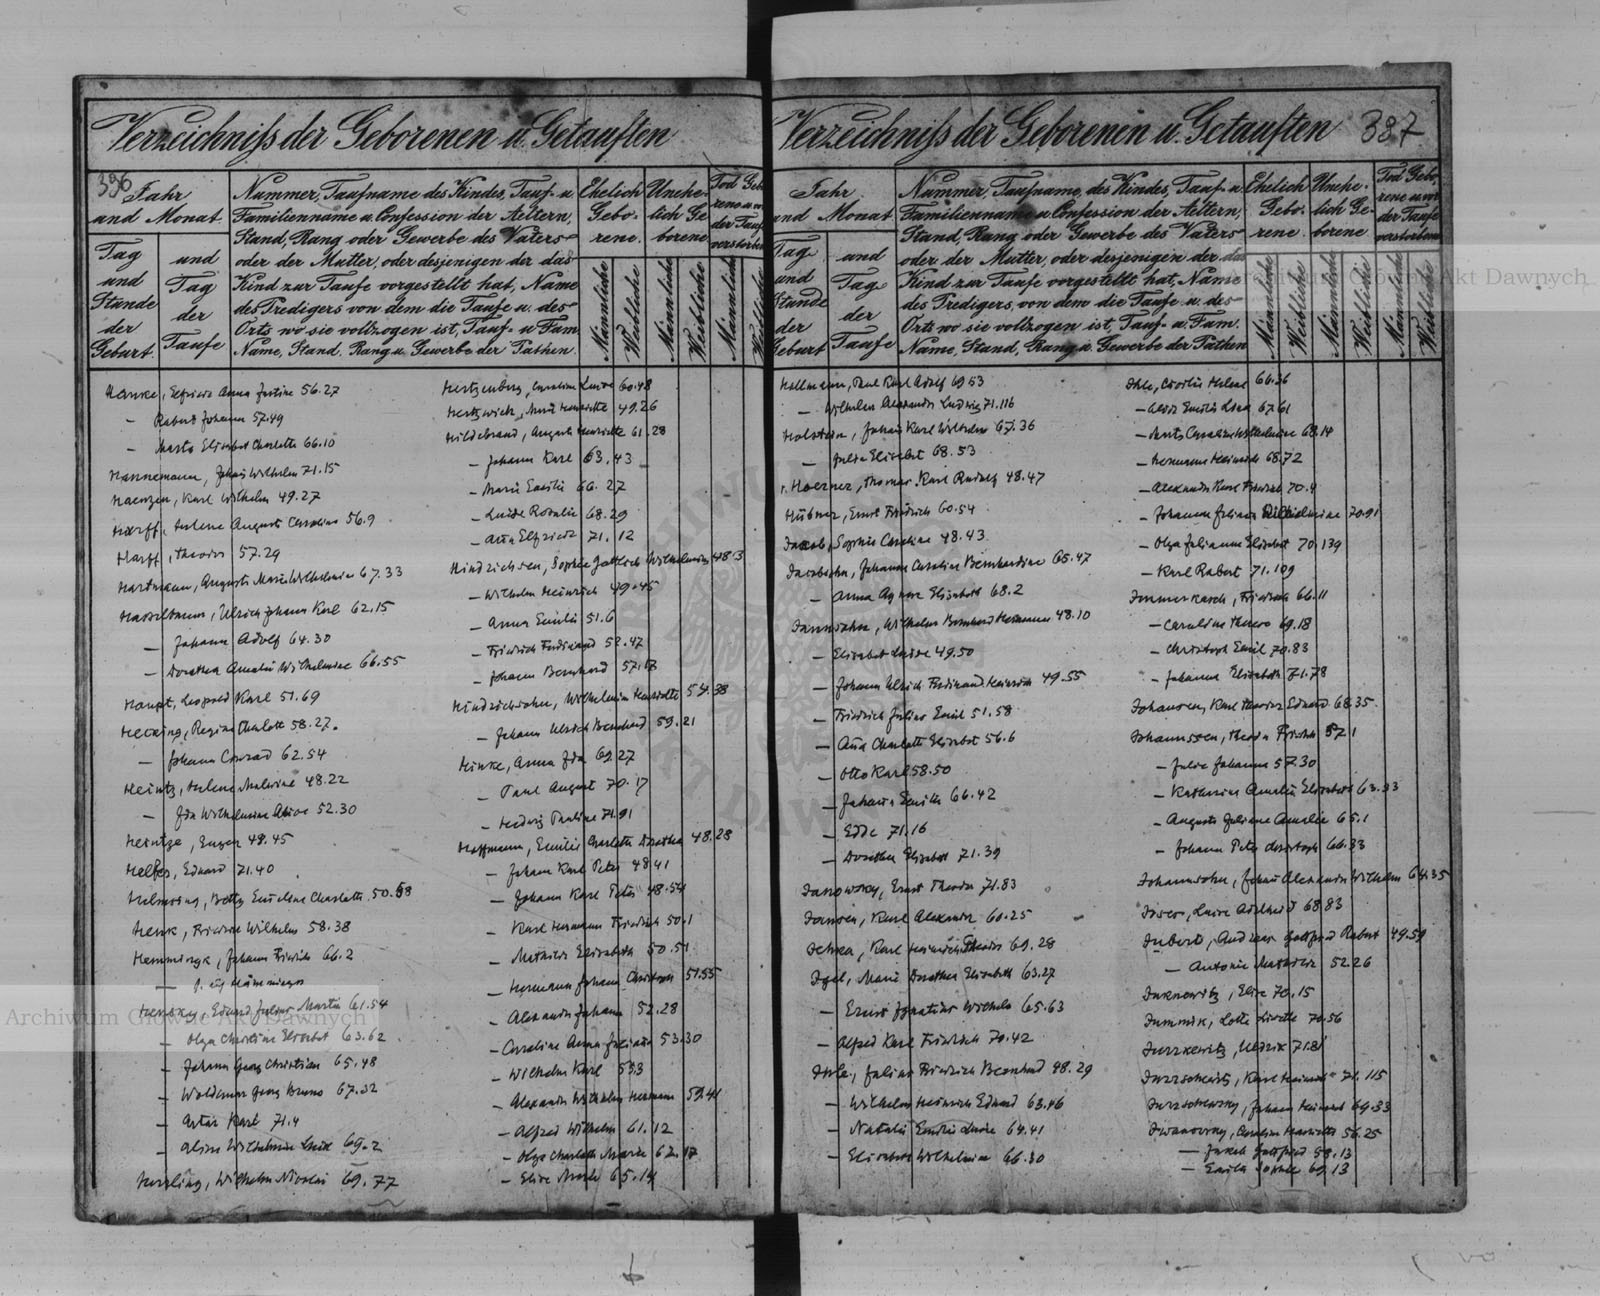 Verzeichniss der Geborenen u. Getauften
396
Jahr
und Monat
Tag
und
Stunde
der
Geburt.
und
Tag
der
Taufe
Nummer, Taufname des Kindes, Tauf- u
Familienname u. Confession der Aeltern,
Stand, Rang oder Gewerbe des Vaters
oder der Mutter, oder desjenigen der das
Kind zur Taufe vorgestellt hat, Name
des Predigers von dem die Taufe u. des
Orts wo sie vollzogen ist, Tauf- u Fam.
Name, Stand, Rang u. Gewerbe der Pathen.
Ehelich
Gebo-
rene.
Unehe-
lich Ge
borene
Tod Gebo
rene u. vor
der Taufe
verstorben
Männliche
Weibliche
Männliche
Weibliche
Männliche
Weibliche
Hanke, Elfriede Anna Justine 56.27
— Robert Johann 57.49
— Martha Elisabet Charlotte 66.10
Hannemann, Johann Wilhelm 71.15
Haenzen, Karl Wilhelm 49.27
Harff, Helene Auguste Caroline 56.9
Harff, Theodor 57.29
Hartmann, Auguste Marie Wilhelmine 67.33
Hasselbaum, Ulrich Johann Karl 62.15
— Johann Adolf 64.30
— Dorothea Amalie Wilhelmine 66.55
Haupt, Leopold Karl 51.69
Regine Charlotte 58.27.
— Johann Conrad 62.54
Heintz, Helene Malwine 48.22
— Ida Wilhelmine Alwine 52.30
Heintze, Eugen 49.45
Eduard 71.40
Betty Emilene Charlotte 50.58
Henk, Friedrich Wilhelm 58.38
Hemmingk, Johann Friedrich 66.2
Hensky, Eduard Julius Martin 61.54
— Olga Christine Elisabet 63.62
— Johann Georg Christian 65.48
— Woldemar Georg Bruno 67.32
— Artur Karl 71.4
— Aline Wilhelmine 69.2
Hessling, Wilhelm Nicolai 69.77
Hertzenberg, Caroline Luise 60.48
Hertzwich, Marie Henriette 49.26
Hildebrand, Auguste Henriette 61.28
— Johann Karl 63.43
— Marie Emilie 66.27
— Luise Rosalie 68.29
— Anna Elfriede 71.12
Hindrichsen, Sophie Gottlieb Wilhelmine 48.3
— Wilhelm Heinrich 49.45
— Anna Emilie 51.6
— Friedrich Ferdinand 52.47
— Johann Bernhard 57.17
Hindrichsohn, Wilhelmine Henriette 54.38
— Johann Ulrich Bernhard 59.21
Hinke, Anna Ida 69.27
— Paul August 70.17
— Hedwig Pauline 71.91
Hoffmann, Emilie Charlotte Dorothea 48.28
— Johann Karl Peter 48.41
— Johann Karl Peter 48.54
— Karl Hermann Friedrich 50.1
— Mathilde Elisabeth 50.51
— Hermann Johann Christoph 51.55
— Alexander Johann 52.28
— Caroline Anna Juliane 53.30
— Wilhelm Karl 55.3
— Alexander Wilhelm Hermann 59.41
— Alfred Wilhelm 61.12
— Olga Charlotte Marie 62.17
— Elise Marie 65.14
Verzeichniss der Geborenen u. Getauften
387
Jahr
und Monat
Tag
und
Stunde
der
Geburt
und
Tag
der
Taufe
Nummer, Taufname, des Kindes, Tauf- u
Familienname u Confession der Aeltern,
Stand, Rang oder Gewerbe des Vaters
oder der Mutter, oder desjenigen der das
Kind zur Taufe vorgestellt hat, Name
des Predigers, von dem die Taufe u. des
Orts wo sie vollzogen ist, Tauf- u. Fam.
Name, Stand, Rang u. Gewerbe der Pathen
Ehelich
Gebo-
rene.
Unehe-
lich Ge-
borene
Tod Gebo,
rene u. vor
der Taufe
verstorbene
Männliche
Weibliche
Männliche
Weibliche
Männliche
Weibliche
Hollmann, Paul Karl Adolf 69.53
— Wilhelm Alexander Ludwig 71.116
Holstein, Johann Karl Wilhelm 67.36
— Julie Elisabet 68.53
Hoerner, Thomas Karl Rudolf 48.47
Hübner, Ernst Friedrich 60.54
Jacob, Sophie Caroline 48.43
Jacobsohn, Johanna Caroline Bernhardine 65.47
— Anna Agnese Elisabeth 68.2
Jannsohn, Wilhelm Bernhard Hermann 48.10
— Elisabet Luise 49.50
— Johann Ulrich Ferdinand Heinrich 49.55
— Friedrich Julius Emil 51.58
— Anna Charlotte Elisabet 56.6
— Otto Karl 58.50
— Johann Emilie 66.42
— Edde 71.16
— Dorothea Elisabeth 71.39
Janowsky, Ernst Theodor 71.83
Jansen, Karl Alexander 60.25
Karl Heinrich Theodor 69.28
Igel, Marie Dorothea Elisabeth 63.27
— Ernst Ignatius Wilhelm 65.63
— Alfred Karl Friedrich 70.42
Ihle, Julius Friedrich Bernhard 48.29
— Wilhelm Heinrich Eduard 63.86
— Natalie Emilie Luise 64.41
— Elisabeth Wilhelmine 66.30
Ihle, Cecilie Helene 66.26
— Alide Emilie Lina 67.61
— Caroline Wilhelmine 68.14
— Hermann Heinrich 68.72
— Alexander Karl Friedrich 70.4
— Johanna Juliane Wilhelmine 70.91
— Olga Julianne Elisabet 70.139
— Karl Robert 71.109
Immerkasch, Friedrich 66.11
— Caroline Therese 69.18
— Christoph Emil 70.83
— Johanna Elisabeth 71.78
Johansen, Karl Theodor Eduard 68.35.
Johannssen, Theodor Friedrich 57.1
— Julie Johanna 57.30
— Katharina Amalie Elisabeth 63.33
— Auguste Juliane Amalie 65.1
— Johann Peter Christoph 66.33
Johannsohn, Johann Alexander Wilhelm 64.35
Luise Adelheid 68.83
Jubert, Andreas Gottfried Robert 49.59
— Antonie Mathilde 52.26
Elise 70.15
Lotte Lisette 70.56
Jurzkewitz, Ulrich 71.81
Karl Heinrich 71.115
Johann Heinrich 69.33
Iwanowsky, Caroline Henriette 56.25
— Jakob Gottfried 58.13
— Emilie 69.13
Archiwum Główne Akt Dawnych
Archiwum Główne Akt Dawnych